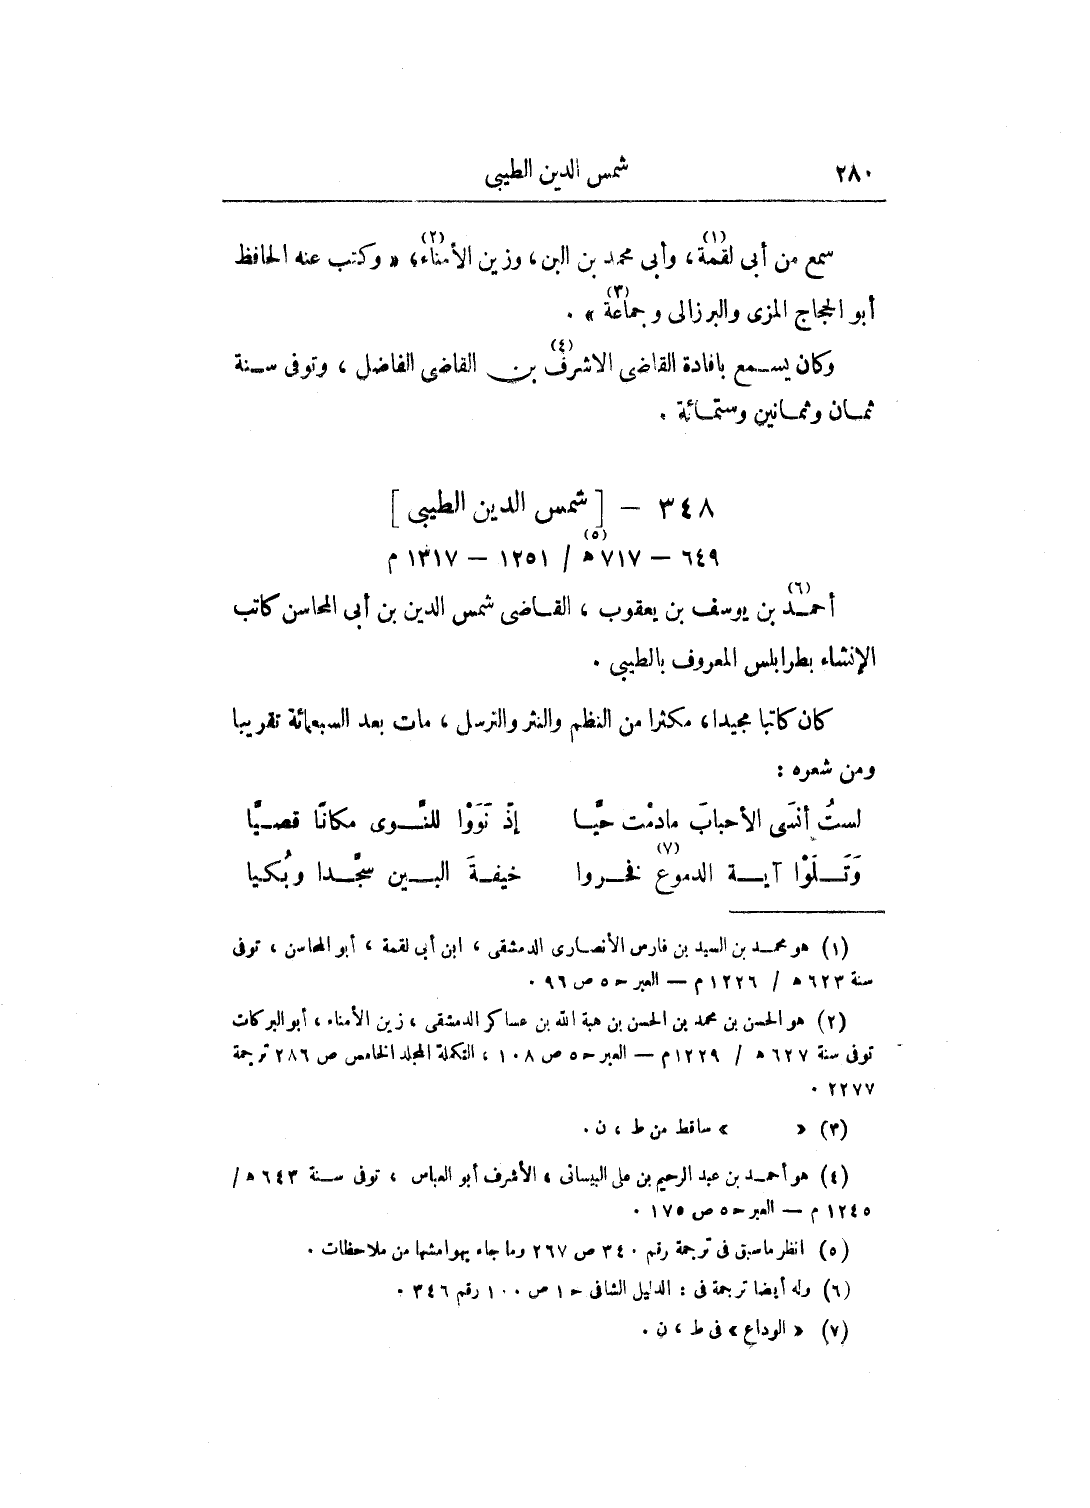 ٢٨٠
شمس الدين الطيبى
سمع من أبى لقمة(١)، وأبى محمد بن البن، وزين الأمناء(٢)، « وكتب عنه الحافظ
أبو الحجاج المزى والبرزالى وجماعة(٣) » .
وكان يسمع بافادة القاضى الاشرف(٤) بن القاضى الفاضل ، وتوفى سنة
ثمان وثمانين وستمائة .
٣٤٨ – [ شمس الدين الطيبى ]
٦٤٩ – ٧١٧ھ(٥) / ١٢٥١ – ١٣١٧ م
أحمد(٦) بن يوسف بن يعقوب ، القاضى شمس الدين بن أبى المحاسن كاتب
الإنشاء بطرابلس المعروف بالطيبى .
كان كاتبا مجيدا، مكثرا من النظم والنثر والترسل ، مات بعد السبعمائة تقريبا
ومن شعره :
لستُ أنسَى الأحبابَ مادمْت حيَّا إذْ نَوَوْا للنَّوى مكانًا قصيَّا
وَتَلَوْا آية الدموع(٧) فخروا خيفةَ البين سجَّدا وبُكيا
(١) هو محمد بن السيد بن فارس الأنصارى الدمشقى ، ابن أبى لقمة ، أبو المحاسن ، توفى
سنة ٦٢٣ ھ / ١٢٢٦ م – العبر حـ ٥ ص ٩٦ .
(٢) هو الحسن بن محمد بن الحسن بن هبة الله بن عساكر الدمشقى ، زين الأمناء ، أبو البركات
توفى سنة ٦٢٧ ھ / ١٢٢٩م – العبر حـ ٥ ص ١٠٨ ، التكملة المجلد الخامس ص ٢٨٦ ترجمة
٢٢٧٧ .
(٣) « » ساقط من ط ، ن .
(٤) هو أحمد بن عبد الرحيم بن على البيسانى ، الأشرف أبو العباس ، توفى سنة ٦٤٣ ھ /
١٢٤٥ م – العبر حـ ٥ ص ١٧٥ .
(٥) انظر ماسبق فى ترجمة رقم ٣٤٠ ص ٢٦٧ وما جاء بهوامشها من ملاحظات .
(٦) وله أيضا ترجمة فى : الدليل الشافى حـ ١ ص ١٠٠ رقم ٣٤٦ .
(٧) « الوداع » فى ط ، ن .